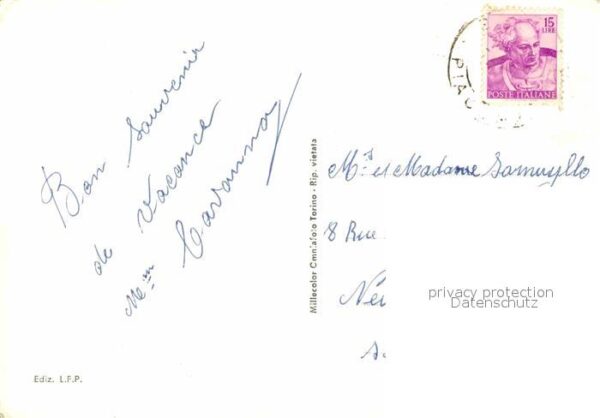 Bon Souvenir
de Vacance
Mem
Ediz. L.F.P.
Millecolor Omniafoto Torino - Rip. vietata
PIA
15
LIRE
POSTE ITALIANE
Mr et Madame Samuyllo
8 Rue
Neu
privacy protection
Datenschutz